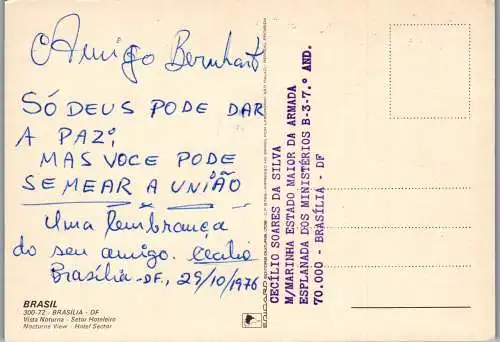 O Amigo Bernhart
SÓ DEUS PODE DAR
A PAZ;
MAS VOCE PODE
SEMEAR A UNIÃO
Uma lembrança
do seu amigo. Cecilio
Brasília-DF, 29/10/1976
BRASIL
300-72 - BRASÍLIA - DF
Vista Noturna - Setor Hoteleiro
Nocturne View - Hotel Sector
CECÍLIO SOARES DA SILVA
M/MARINHA ESTADO MAIOR DA ARMADA
ESPLANADA DOS MINISTÉRIOS B-3-7.º AND.
70.000 - BRASÍLIA - DF